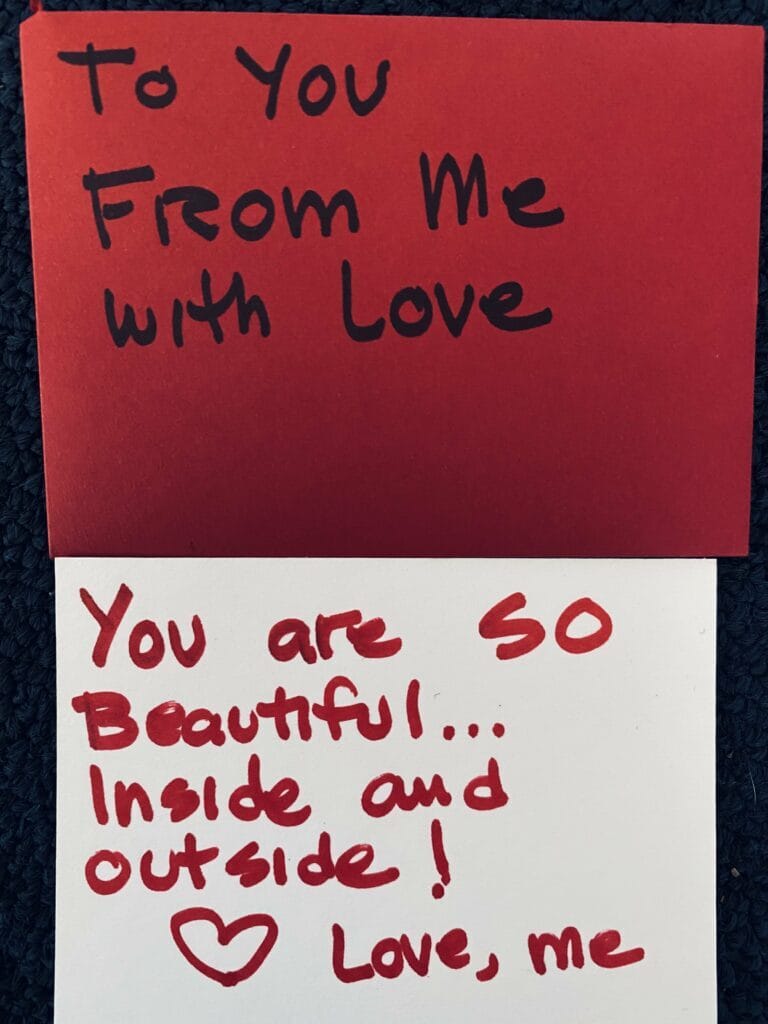 To You
From Me
with Love
You are so
Beautiful...
Inside and
outside!
♡ Love, me